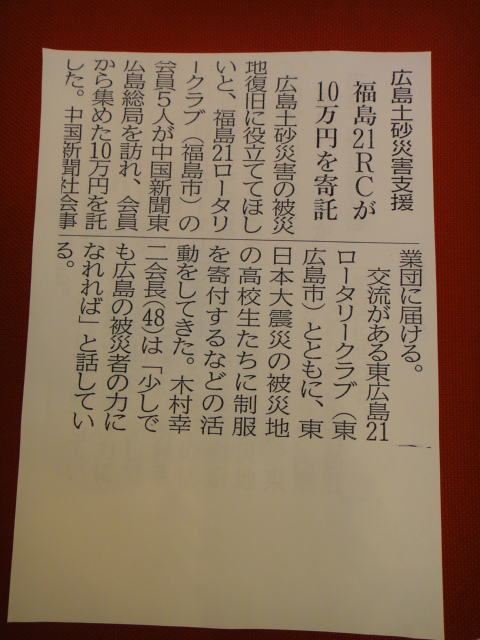 広島土砂災害支援
福島21RCが
10万円を寄託
広島土砂災害の被災
地復旧に役立ててほし
いと、福島21ロータリ
ークラブ（福島市）の
会員５人が中国新聞東
広島総局を訪れ、会員
から集めた10万円を託
した。中国新聞社会事
業団に届ける。
交流がある東広島21
ロータリークラブ（東
広島市）とともに、東
日本大震災の被災地
の高校生たちに制服
を寄付するなどの活
動をしてきた。木村幸
二会長(48)は「少しで
も広島の被災者の力に
なれれば」と話してい
る。